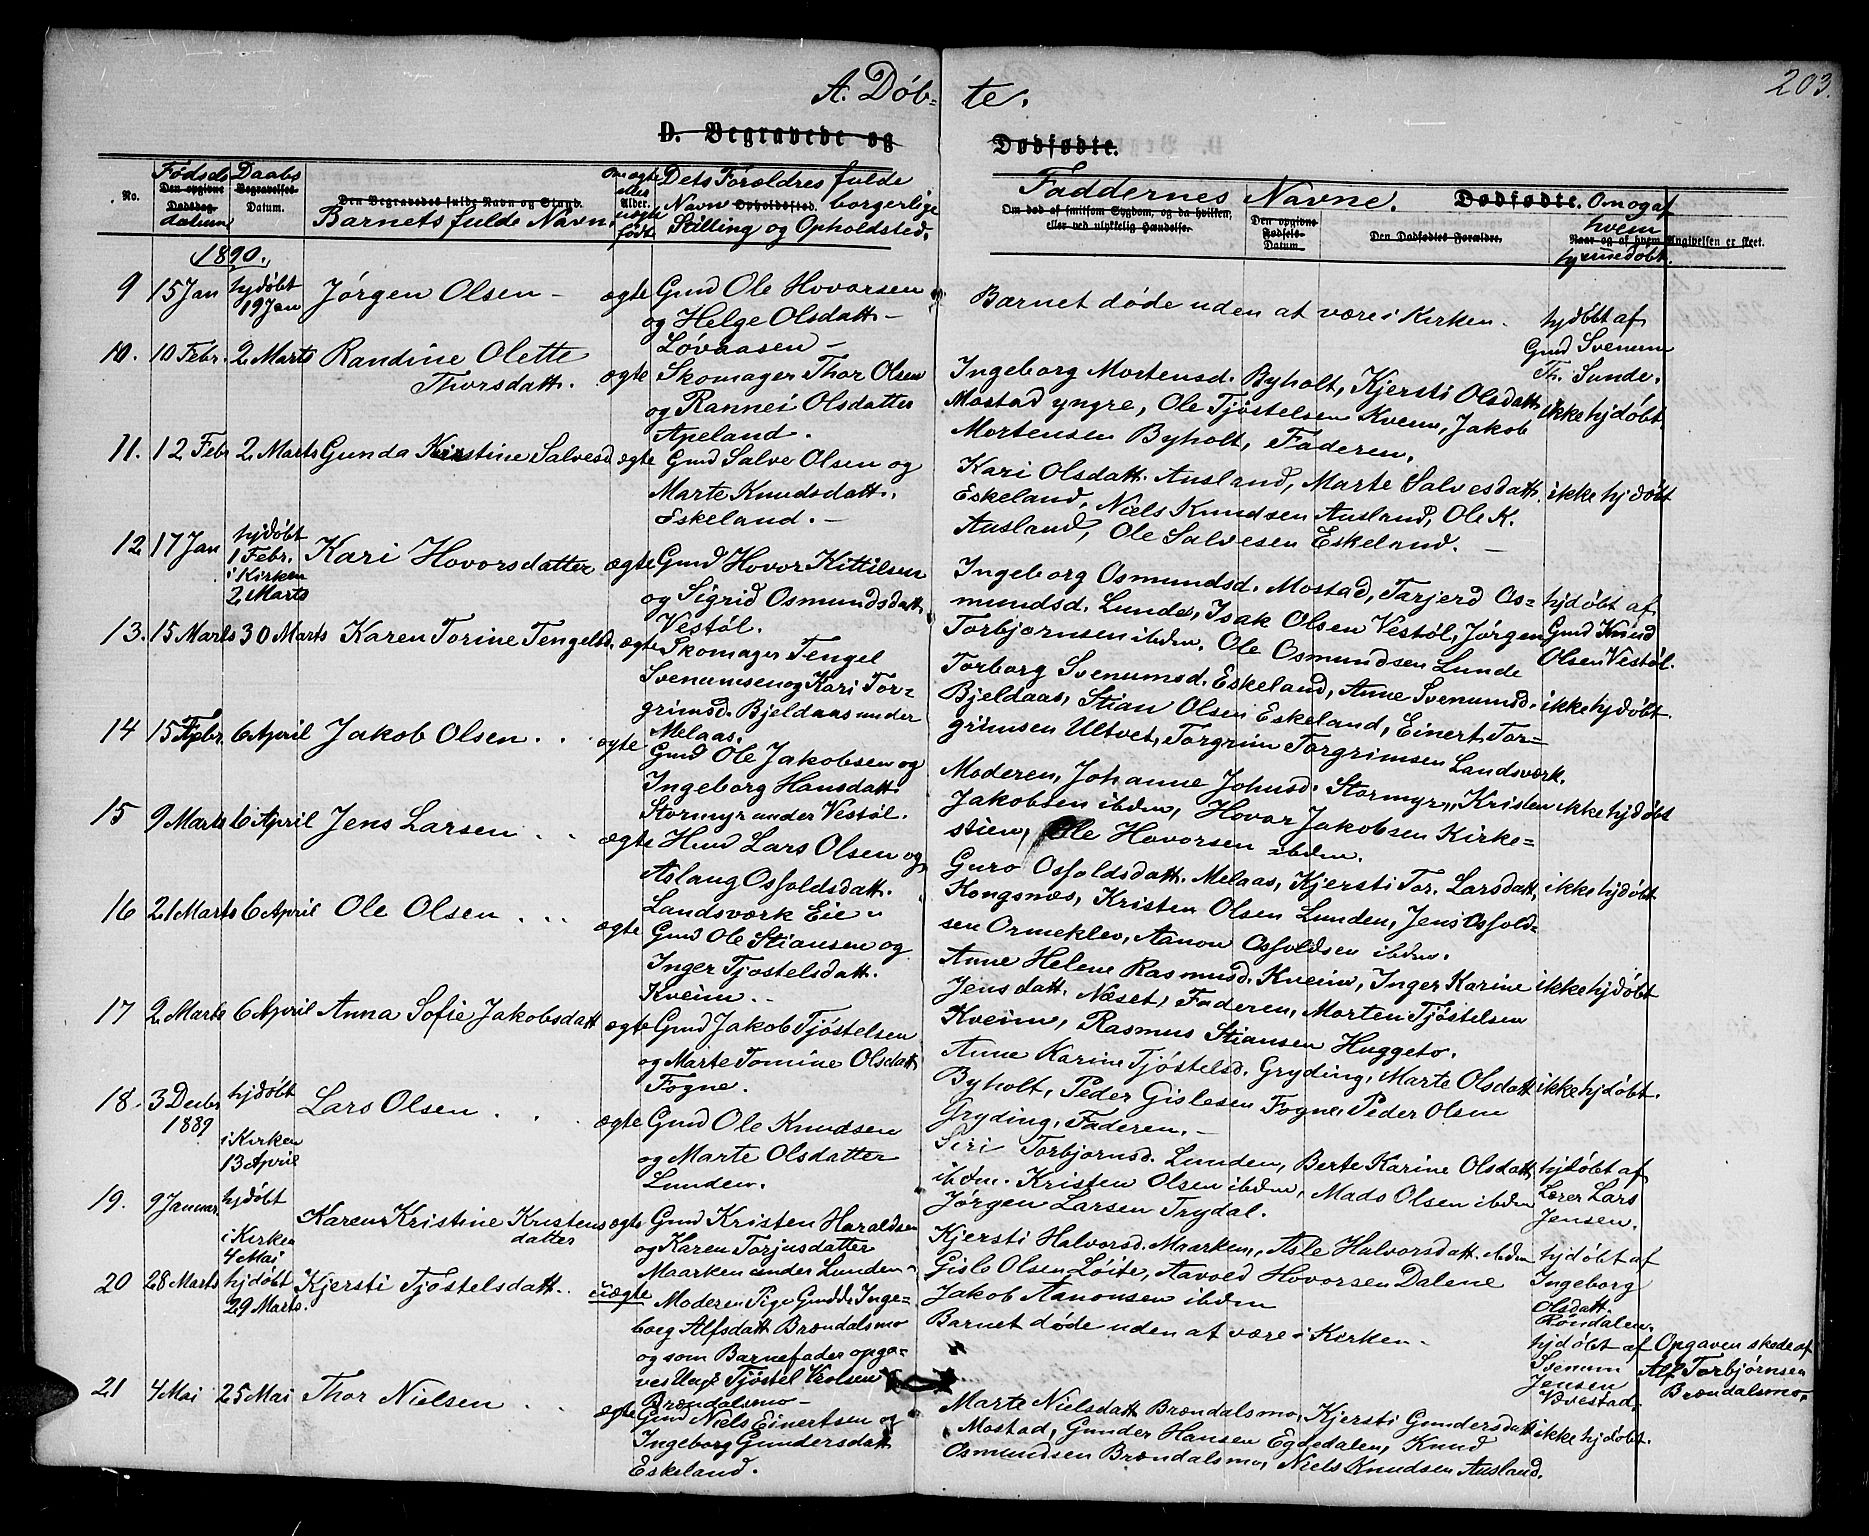 203.
A. Døb- te.
D. Begravede og Dødfødte.
No.
Fødsels
Den opgivne
Dødsdag.
datum
Daabs
Begravelses-
Datum.
Den Begravedes fulde Navn og Stand.
Barnets fulde Navn.
om ægte
eller
Alder.
uægte
født
Dets Forældres fulde
Navn Opholdssted. borgerlige
Stilling og Opholdsted.
Faddernes Navne.
Om død af smitsom Sygdom, og da hvilken,
eller ved ulykkelig Hændelse.
Den opgivne
Fødsels-
Datum.
Dødfødte.
Den Dødfødtes Forældre.
Om og af
hvem
Naar og af hvem Angivelsen er skeet.
hjemmedøbt.
1890.
9 15 Jan hjdøbt
19 Jan Jørgen Olsen - ægte Gmd Ole Hovorsen
og Helge Olsdatt. -
Lovaasen -
Barnet døde uden at være i Kirken.
hjdøbt af
Gmd Svenum
Th. Sunde.
10. 10 Febr. 2 Marts Randine Olette
Thorsdatt. ægte Skomager Thor Olsen
og Rannei Olsdatter
Apeland.
Ingeborg Mortensd. Byholt, Kjersti Olsdatt.
Mostad yngre, Ole Tjøstelsen Kveim, Jakob
Mortensen Byholt, Faderen.
ikke hjdøbt.
11. 12 Febr 2 Marts Gunda Kirstine Salvesd ægte Gmd Salve Olsen og
Marte Knudsdatt.
Eskeland. -
Kari Olsdatt. Ausland, Marte Salvesdatt.
Eskeland, Niels Knudsen Ausland, Ole K.
Ausland, Ole Salvesen Eskeland. -
ikke hjdøbt
12 17 Jan hjdøbt
1 Febr.
i Kirken
2 Marts Kari Hovorsdatter ægte Gmd Hovor Kittilsen
og Sigrid Osmundsdatt.
Vestøl.
Ingeborg Osmundsd. Mostad, Tarjerd Os-
mundsd. Lunde, Isak Olsen Vestøl, Jørgen
Torbjørnsen ibdm. Ole Osmundsen Lunde
hjdøbt af
Gmd Knud
Olsen Vestøl.
13. 15 Marts 30 Marts Karen Torine Tengelsd. ægte Skomager Tengel
Svenumsen og Kari Tor-
grimsd. Bjeldaas under
Melaas.
Torborg Svenumsd. Eskeland, Anne Svenumsd.
Bjeldaas, Stian Olsen Eskeland, Einert Tor-
grimsen Ultvet, Torgrim Torgrimsen Landsværk.
ikke hjdøbt.
14 15 Febr 6 April Jakob Olsen . . ægte Gmd Ole Jakobsen og
Ingeborg Hansdatt.
Stormyr under Vestøl.
Moderen, Johanne Johnsd. Stormyr, Kristen
Jakobsen ibdm, Hovor Jakobsen Kirke-
stien, Ole Hovorsen ibdm.
ikke hjdøbt
15 9 Marts 6 April Jens Larsen . . ægte Hmd Lars Olsen og
Aslaug Osfoldsdatt.
Landsværk Eie
Guro Osfoldsdatt. Melaas, Kjersti Tor. Larsdatt.
Kongsnæs, Kristen Olsen Lunden, Jens Osfold-
sen Ormeklev, Aanon Osfoldsen ibdm.
ikke hjdøbt
16 21 Marts 6 April Ole Olsen . . . ægte Gmd Ole Stiansen og
Inger Tjøstelsdatt.
Kveim. -
Anne Helene Rasmusd. Kveim, Inger Karine
Jensdatt. Næset, Faderen, Morten Tjøstelsen
Kveim, Rasmus Stiansen Huggeto.
ikke hjdøbt
17 2 Marts 6 April Anna Sofie Jakobsdatt ægte Gmd Jakob Tjøstelsen
og Marte Tomine Olsdatt
Fogne.
Anne Karine Tjøstelsd. Gryding, Marte Olsdatt
Byholt, Peder Gislesen Fogne, Peder Olsen
Gryding, Faderen. -
ikke hjdøbt.
18. 3 Decbr
1889 hjdøbt
i Kirken
13 April Lars Olsen . . . ægte Gmd Ole Knudsen
og Marte Olsdatter
Lunden.
Siri Torbjørnsd. Lunden, Berte Karine Olsdatt.
ibdm. Kristen Olsen ibdm, Mads Olsen ibdm
Jørgen Larsen Trydal.
hjdøbt af
Lærer Lars
Jensen.
19. 9 Januar. hjdøbt
i Kirken
4 Mai Karen Kristine Kristens
datter ægte Gmd Kristen Haraldsen
og Karen Torjusdatter
Maarken under Lunden
Kjersti Halvorsd. Maarken, Asle Halvorsdatt. ibdm
Gisle Olsen Løite, Aavold Hovorsen Dalene
Jakob Aanonsen ibdm
hjdøbt af
Ingeborg
Olsdatt.
Rondalen.
20 28 Marts hjdøbt
29 Marts. Kjersti Tjøstelsdatt. . uægte Moderen Pige Gmdd. Inge-
borg Alfsdatt Brændalsmo
og som Barnefader opga-
ves Ungk Tjøstel Olsen
Brændalsmo -
Barnet døde uden at være i Kirken -
hjdøbt af
Svenum
Jensen
Bvestad.
Opgaven skede af
Alf Torbjørnsen
Brændalsmo.
21 4 Mai 25 Mai Thor Nielsen . . ægte Gmd Niels Einertsen og
Ingeborg Gundersdatt
Eskeland.
Marte Nielsdatt Brændalsmo, Kjersti Gundersdatt
Mostad, Gunder Hansen Egdedalen, Knud
Osmundsen Brændalsmo, Niels Knudsen Ausland.
ikke hjdøbt.